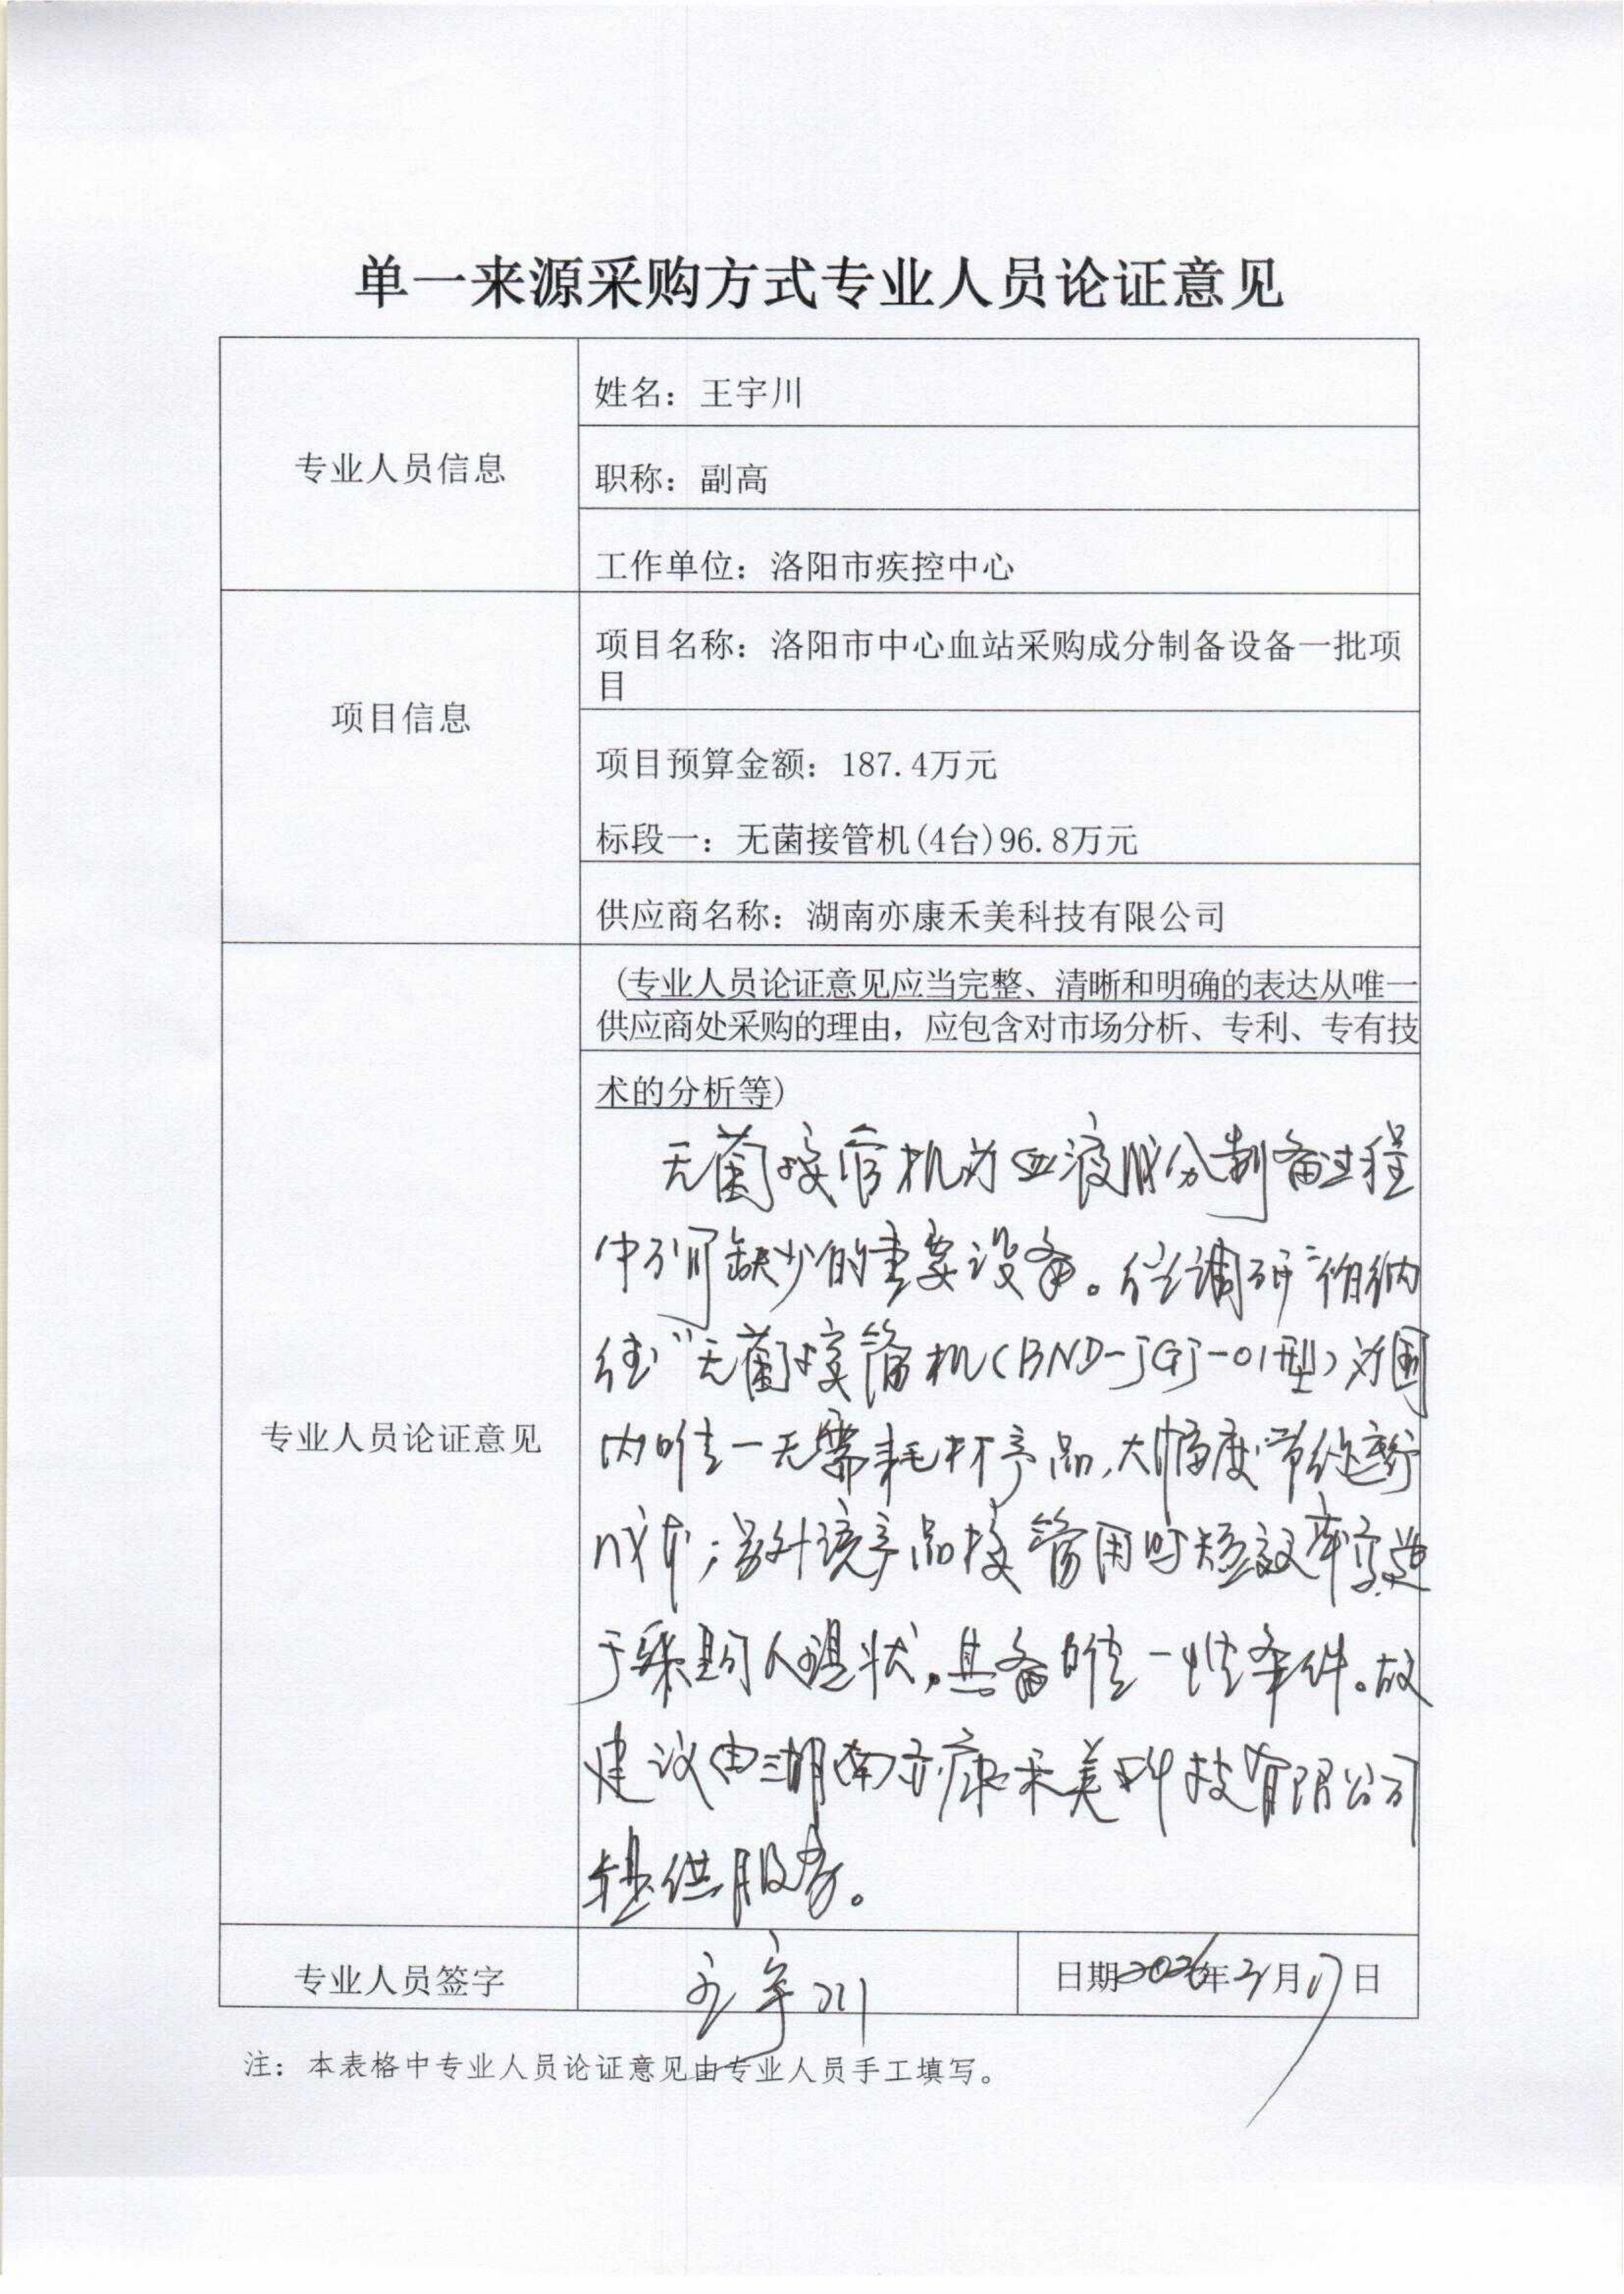 单一来源采购方式专业人员论证意见
专业人员信息
姓名：王宇川
职称：副高
工作单位：洛阳市疾控中心
项目信息
项目名称：洛阳市中心血站采购成分制备设备一批项
目
项目预算金额：187.4万元
标段一：无菌接管机(4台)96.8万元
供应商名称：湖南亦康禾美科技有限公司
专业人员论证意见
(专业人员论证意见应当完整、清晰和明确的表达从唯一
供应商处采购的理由，应包含对市场分析、专利、专有技
术的分析等)
无菌接管机为血液成分制备过程
中不可缺少的重要设备。经调研"伯纳
德"无菌接管机(BND-JGJ-01型)为国
内唯一无需耗材产品,大幅度节约
成本;另外该产品接管用时短效率高适
于采购人现状,具备唯一性条件。故
建议由湖南亦康禾美科技有限公司
提供服务。
专业人员签字
王宇川
日期2026年2月17日
注：本表格中专业人员论证意见由专业人员手工填写。